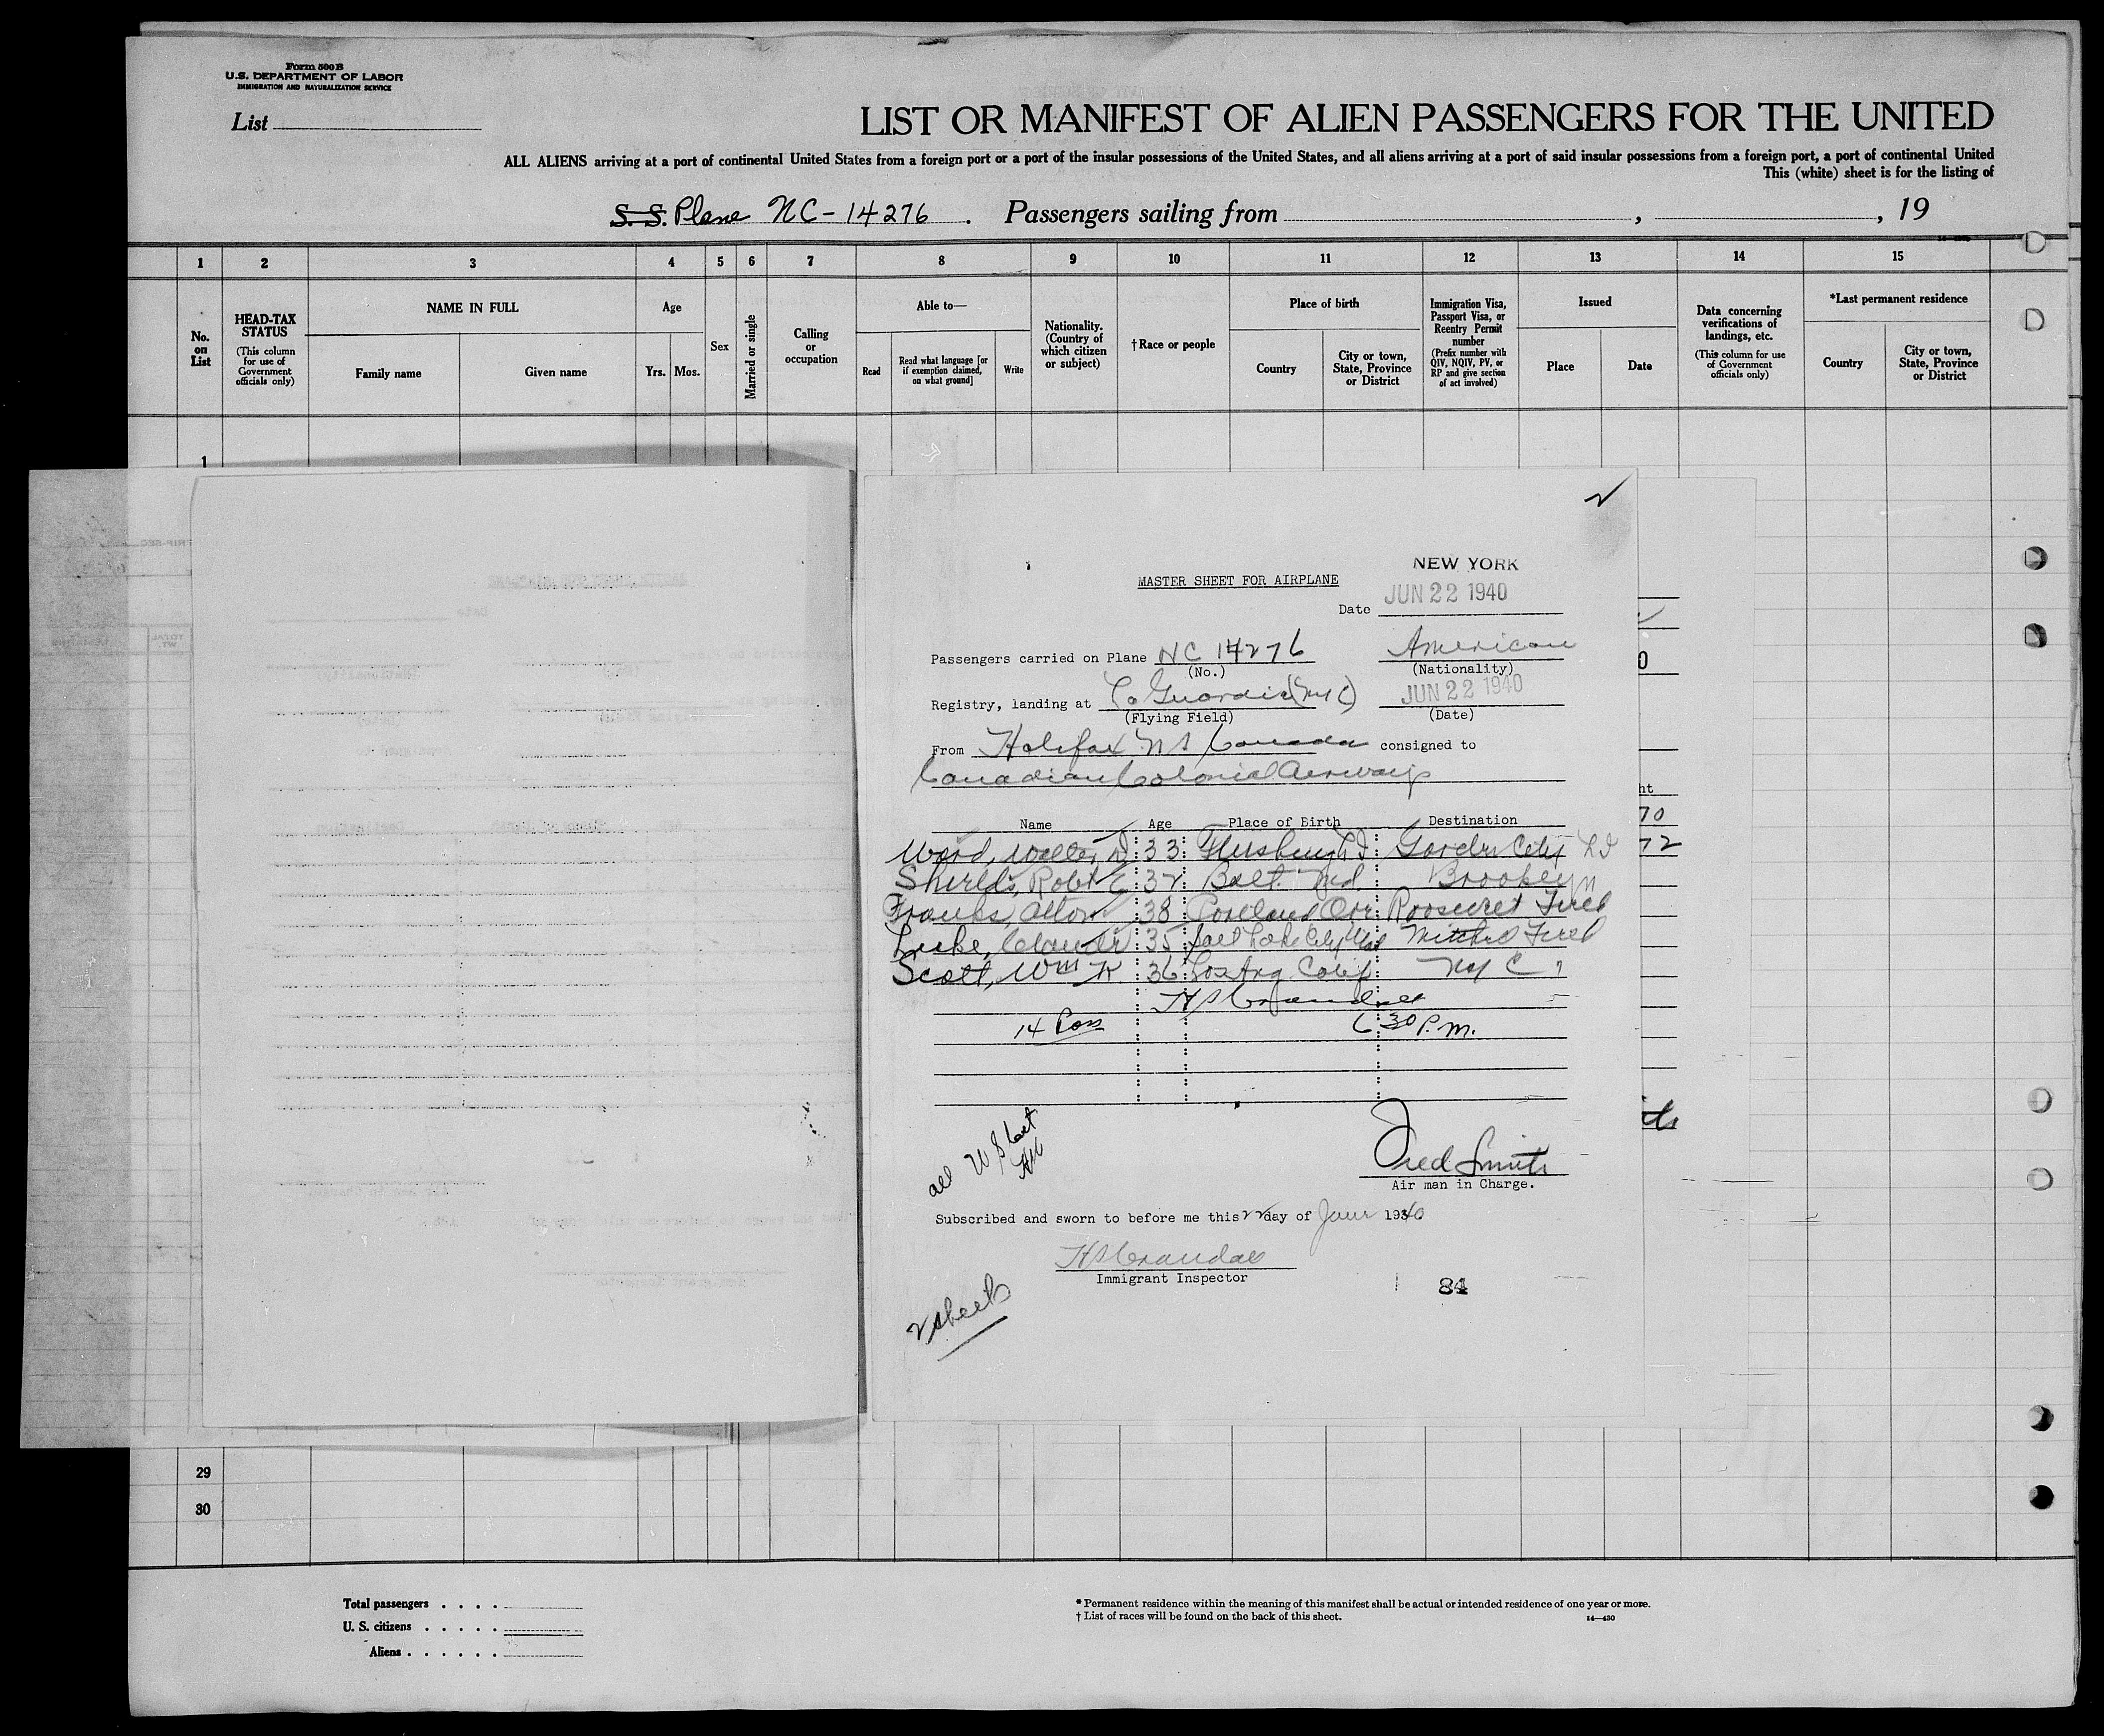 Form 500 B
U.S. DEPARTMENT OF LABOR
IMMIGRATION AND NATURALIZATION SERVICE
List
LIST OR MANIFEST OF ALIEN PASSENGERS FOR THE UNITED
ALL ALIENS arriving at a port of continental United States from a foreign port or a port of the insular possessions of the United States, and all aliens arriving at a port of said insular possessions from a foreign port, a port of continental United
This (white) sheet is for the listing of
S. S. Plane NC-14276. Passengers sailing from , , 19
1 2 3 4 5 6 7 8 9 10 11 12 13 14 15
No. on List
HEAD-TAX STATUS
(This column for use of Government officials only)
NAME IN FULL
Family name
Given name
Age
Yrs. Mos.
Sex
Married or single
Calling or occupation
Able to—
Read
Read what language [or if exemption claimed, on what ground]
Write
Nationality. (Country of which citizen or subject)
†Race or people
Place of birth
Country
City or town, State, Province or District
Immigration Visa, Passport Visa, or Reentry Permit number
(Prefix number with QIV, NQIV, PV, or RP and give section of act involved)
Issued
Place
Date
Data concerning verifications of landings, etc.
(This column for use of Government officials only)
*Last permanent residence
Country
City or town, State, Province or District
1
NEW YORK
MASTER SHEET FOR AIRPLANE
Date JUN 22 1940
Passengers carried on Plane NC 14276 American
(No.) (Nationality)
Registry, landing at La Guardia (NYC) JUN 22 1940
(Flying Field) (Date)
From Halifax NS Canada consigned to
Canadian Colonial Airways
ht
Name Age Place of Birth Destination
70
Ward, Walter D 33 Flushing LI Garden City LI
72
Shields, Robt E 32 Balt. Md. Brooklyn
Franks, Alton 38 Portland Ore Roosevelt Field
35 Salt Lake City Utah Mitchel Field
Scott, Wm K 36 Los Ang. Calif NYC
HS Crandall
14 Pass 6:30 P.M.
all US
Fred Smith
Air man in Charge.
Subscribed and sworn to before me this 22 day of June 1940.
HS Crandall
Immigrant Inspector
84
2 sheets
29
30
Total passengers
U. S. citizens
Aliens
* Permanent residence within the meaning of this manifest shall be actual or intended residence of one year or more.
† List of races will be found on the back of this sheet.
14—430